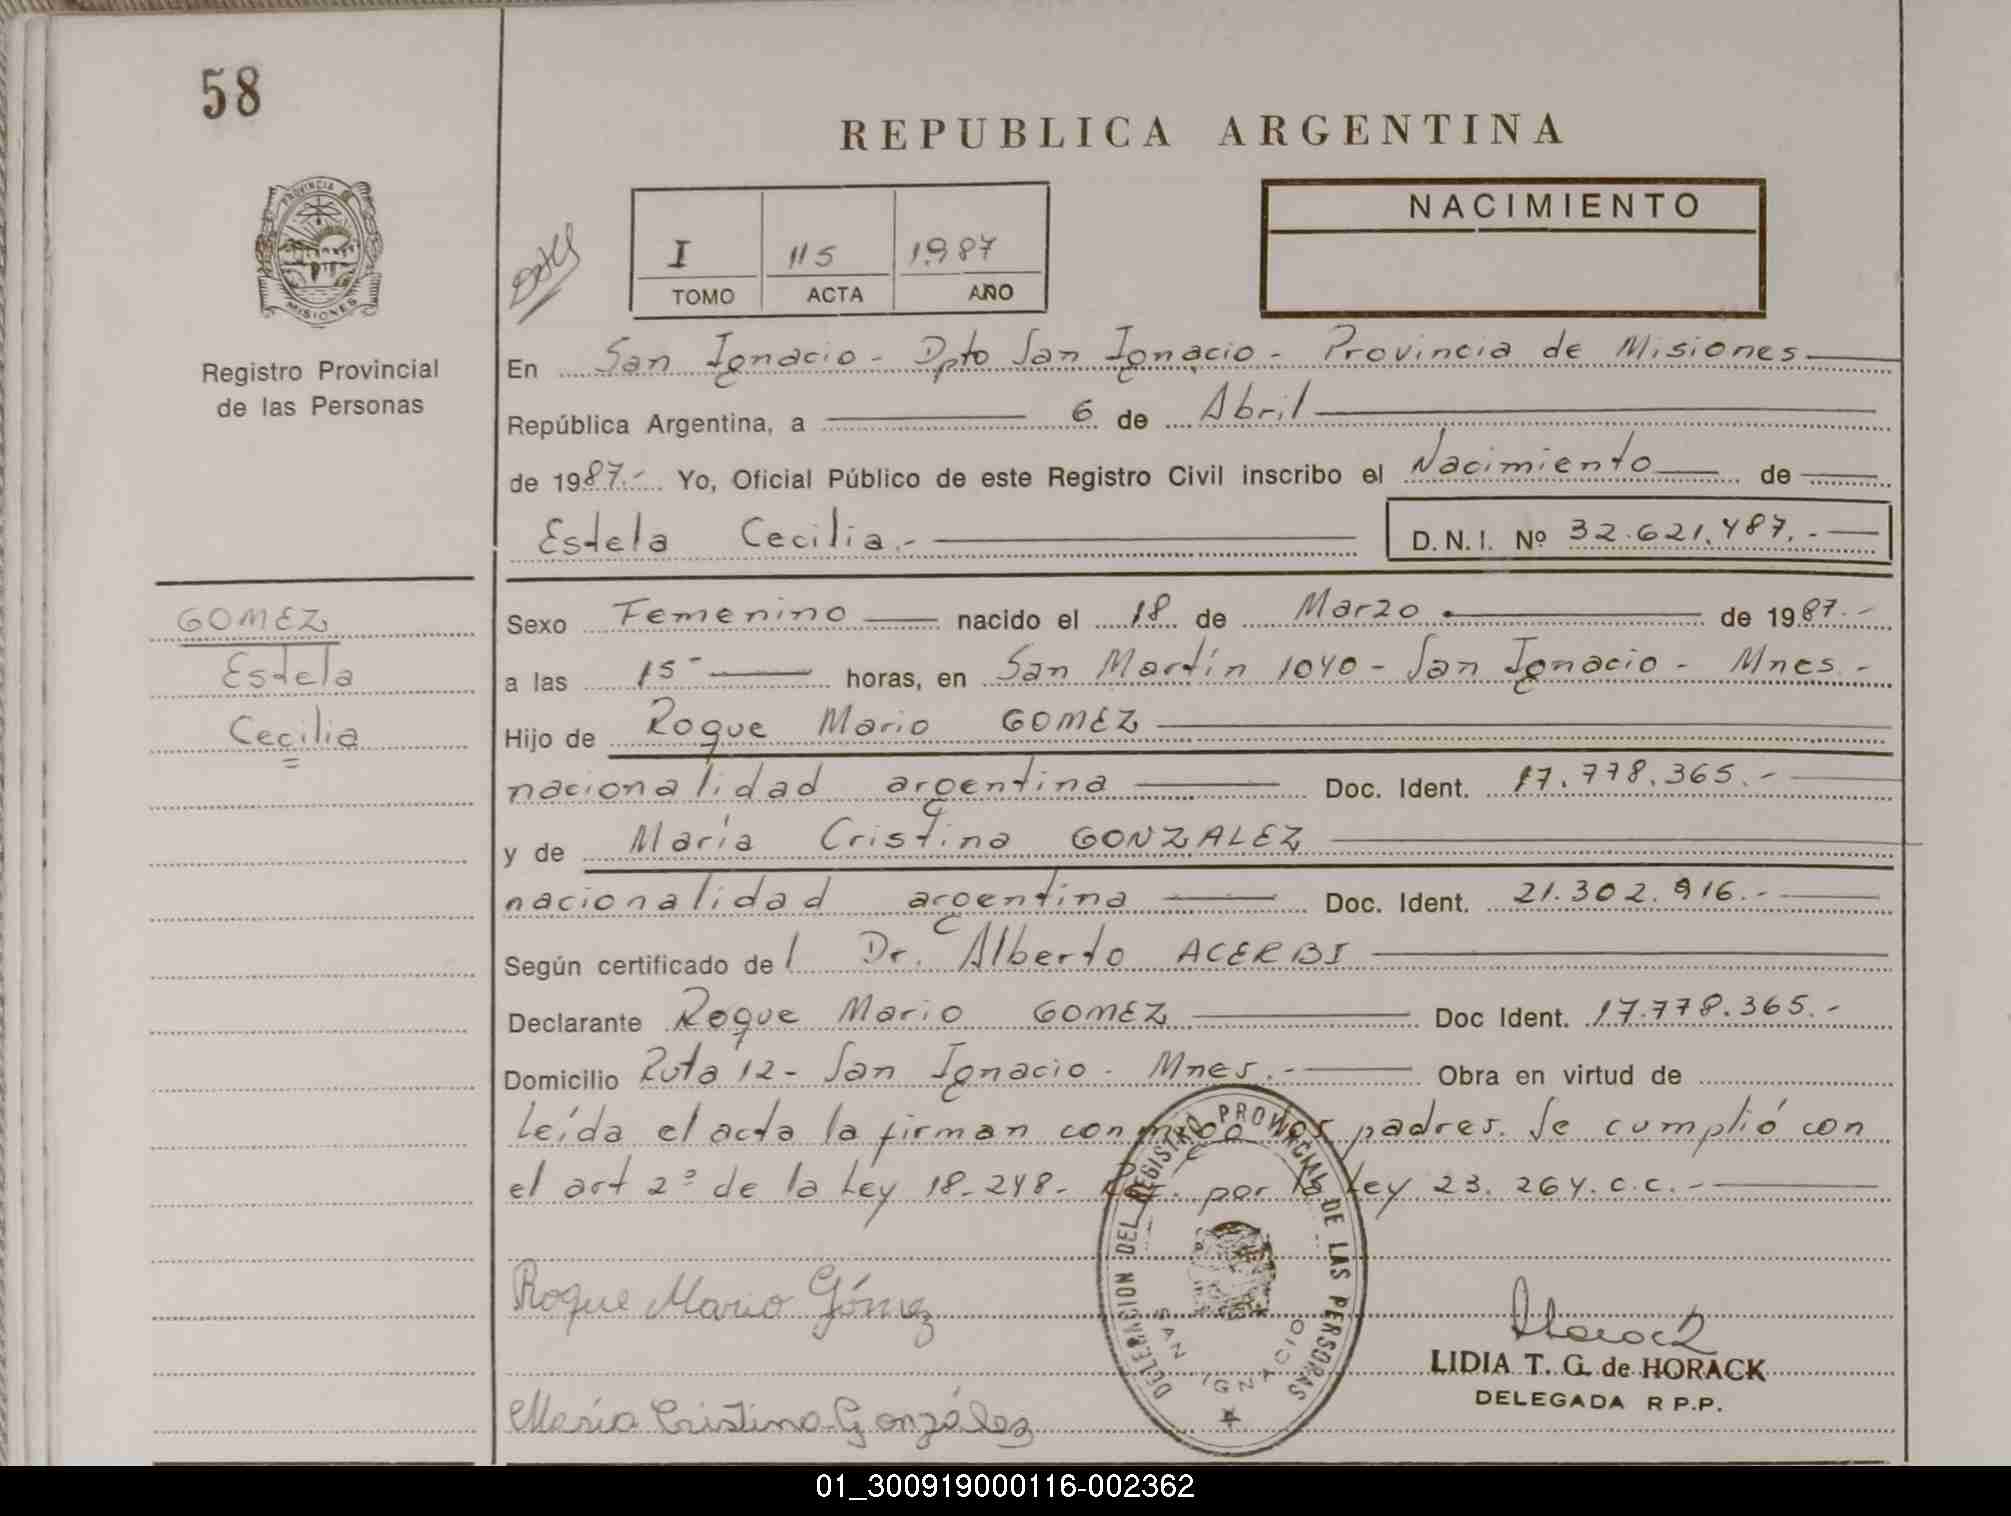 58
REPUBLICA ARGENTINA
PROVINCIA
MISIONES
Registro Provincial
de las Personas
I 115 1987
TOMO ACTA AÑO
NACIMIENTO
En San Ignacio - Dpto San Ignacio - Provincia de Misiones
República Argentina, a 6 de Abril
de 1987.- Yo, Oficial Público de este Registro Civil inscribo el Nacimiento de
Estela Cecilia.- D.N.I. Nº 32.621.487.-
GOMEZ
Estela
Cecilia
Sexo Femenino nacido el 18 de Marzo de 1987.-
a las 15 horas, en San Martín 1040 - San Ignacio - Mnes -
Hijo de Roque Mario GOMEZ
nacionalidad argentina Doc. Ident. 17.778.365.-
y de María Cristina GONZALEZ
nacionalidad argentina Doc. Ident. 21.302.916.-
Según certificado del Dr. Alberto ACERBI
Declarante Roque Mario GOMEZ Doc Ident. 17.778.365.-
Domicilio Ruta 12 - San Ignacio - Mnes.- Obra en virtud de
Leída el acta la firman conmigo los padres. Se cumplió con
el art 2º de la Ley 18.248- por la Ley 23.264. c.c.-
DELEGACION DEL REGISTRO PROVINCIAL DE LAS PERSONAS
SAN IGNACIO
Roque Mario Gómez
Horack
LIDIA T. G. de HORACK
DELEGADA R P.P.
María Cristina González
01_300919000116-002362